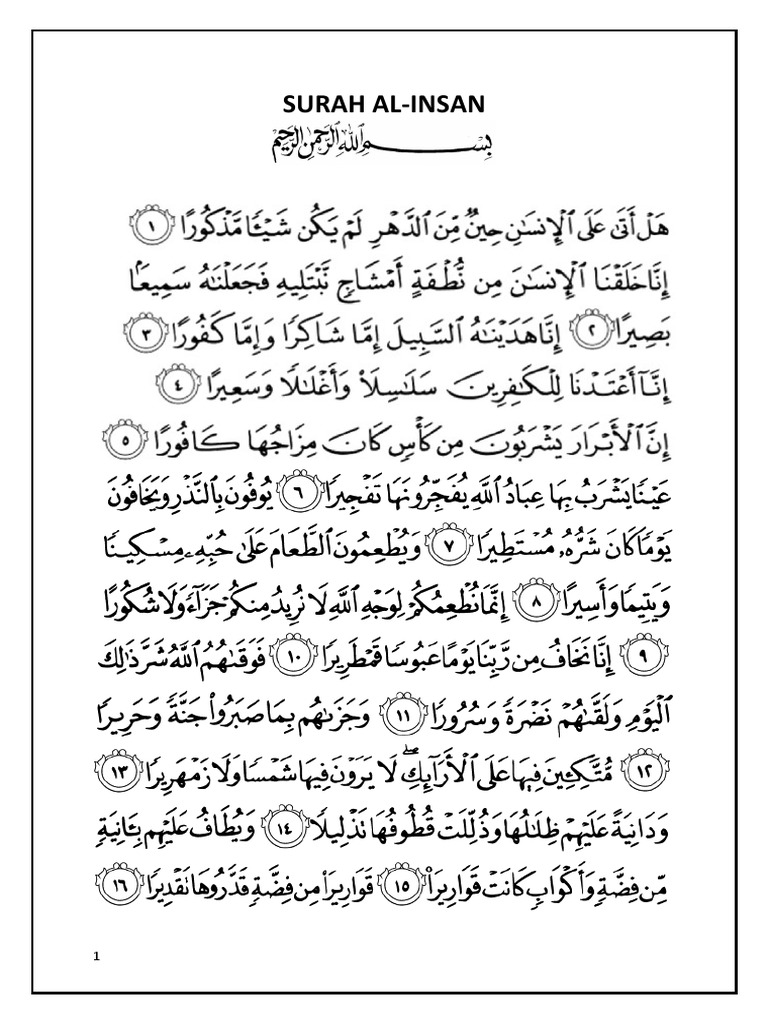 SURAH AL-INSAN
بِسْمِ ٱللَّهِ ٱلرَّحْمَٰنِ ٱلرَّحِيمِ
هَلْ أَتَىٰ عَلَى ٱلْإِنسَٰنِ حِينٌ مِّنَ ٱلدَّهْرِ لَمْ يَكُن شَيْـًٔا مَّذْكُورًا ١
إِنَّا خَلَقْنَا ٱلْإِنسَٰنَ مِن نُّطْفَةٍ أَمْشَاجٍ نَّبْتَلِيهِ فَجَعَلْنَٰهُ سَمِيعًۢا
بَصِيرًا ٢ إِنَّا هَدَيْنَٰهُ ٱلسَّبِيلَ إِمَّا شَاكِرًا وَإِمَّا كَفُورًا ٣
إِنَّآ أَعْتَدْنَا لِلْكَٰفِرِينَ سَلَٰسِلَا۟ وَأَغْلَٰلًا وَسَعِيرًا ٤
إِنَّ ٱلْأَبْرَارَ يَشْرَبُونَ مِن كَأْسٍ كَانَ مِزَاجُهَا كَافُورًا ٥
عَيْنًا يَشْرَبُ بِهَا عِبَادُ ٱللَّهِ يُفَجِّرُونَهَا تَفْجِيرًا ٦ يُوفُونَ بِٱلنَّذْرِ وَيَخَافُونَ
يَوْمًا كَانَ شَرُّهُۥ مُسْتَطِيرًا ٧ وَيُطْعِمُونَ ٱلطَّعَامَ عَلَىٰ حُبِّهِۦ مِسْكِينًا
وَيَتِيمًا وَأَسِيرًا ٨ إِنَّمَا نُطْعِمُكُمْ لِوَجْهِ ٱللَّهِ لَا نُرِيدُ مِنكُمْ جَزَآءً وَلَا شُكُورًا
٩ إِنَّا نَخَافُ مِن رَّبِّنَا يَوْمًا عَبُوسًا قَمْطَرِيرًا ١٠ فَوَقَىٰهُمُ ٱللَّهُ شَرَّ ذَٰلِكَ
ٱلْيَوْمِ وَلَقَّىٰهُمْ نَضْرَةً وَسُرُورًا ١١ وَجَزَىٰهُم بِمَا صَبَرُوا۟ جَنَّةً وَحَرِيرًا
١٢ مُّتَّكِـِٔينَ فِيهَا عَلَى ٱلْأَرَآئِكِ ۖ لَا يَرَوْنَ فِيهَا شَمْسًا وَلَا زَمْهَرِيرًا ١٣
وَدَانِيَةً عَلَيْهِمْ ظِلَٰلُهَا وَذُلِّلَتْ قُطُوفُهَا تَذْلِيلًا ١٤ وَيُطَافُ عَلَيْهِم بِـَٔانِيَةٍ
مِّن فِضَّةٍ وَأَكْوَابٍ كَانَتْ قَوَارِيرَا۠ ١٥ قَوَارِيرَا۟ مِن فِضَّةٍ قَدَّرُوهَا تَقْدِيرًا ١٦
1